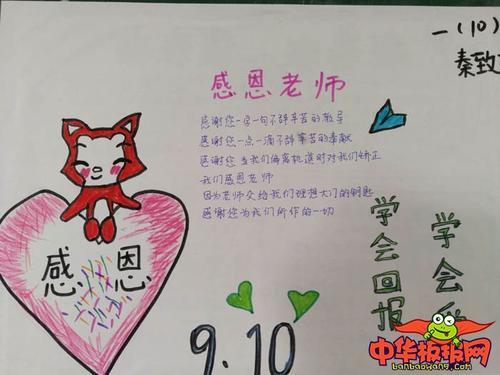 一(10)
秦致
感恩老师
感谢您一字一句不辞辛苦的教导
感谢您一点一滴不辞辛苦的奉献
感谢您当我们偏离轨道时对我们矫正
我们感恩老师
因为老师交给我们理想大门的钥匙
感谢您为我们所作的一切
感恩
学会回报
学会
9.10
中华板报网
banbaowang.com